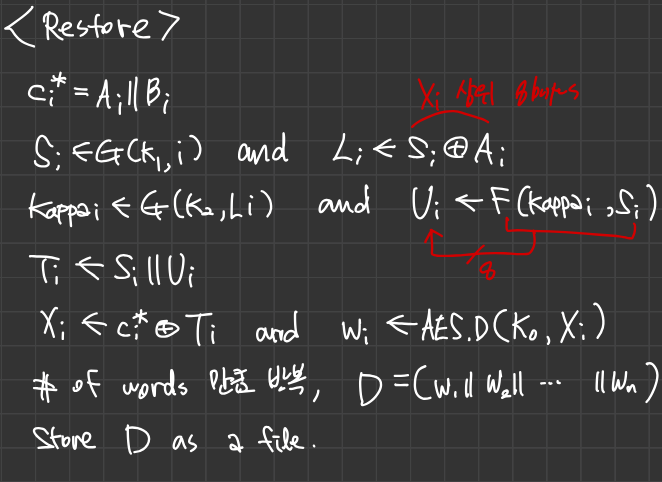 <Restore>
Ci* = Ai || Bi
Xi 상위 8bytes
Si ← G(k1, i) and Li ← Si ⊕ Ai
kappai ← G(k2, Li) and Ui ← F(kappai, Si)
8
Ti ← Si || Ui
Xi ← Ci* ⊕ Ti and Wi ← AES.D(K0, Xi)
# of words 만큼 반복, D = (W1 || W2 || ··· || Wn)
Store D as a file.